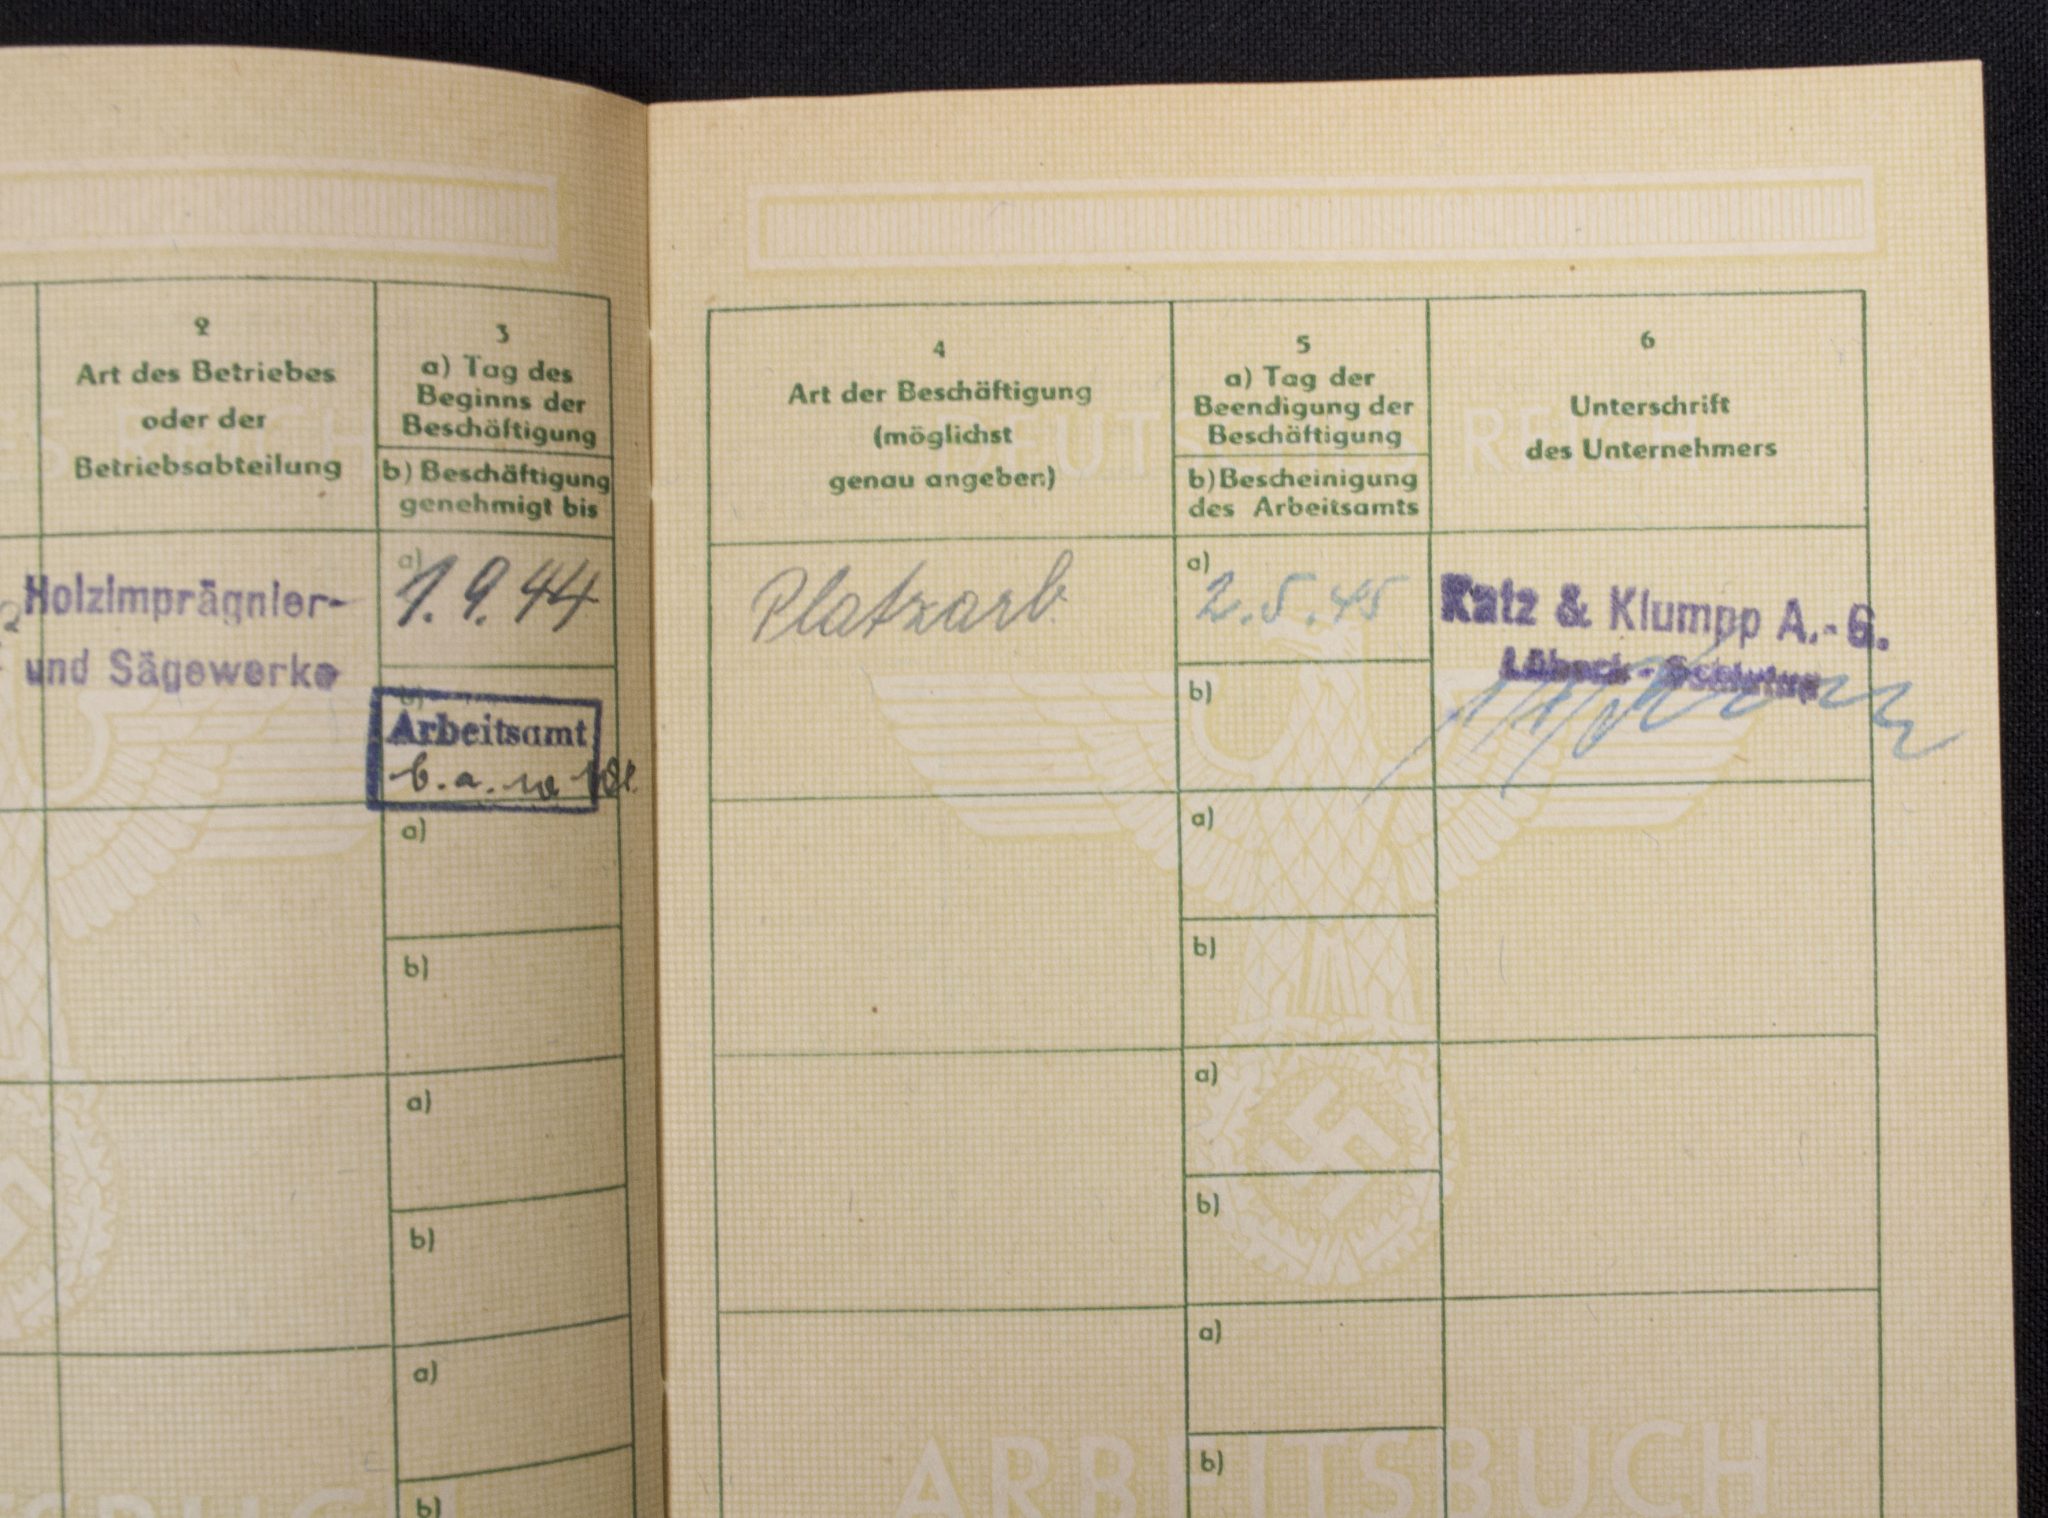 2
Art des Betriebes
oder der
Betriebsabteilung
3
a) Tag des
Beginns der
Beschäftigung
b) Beschäftigung
genehmigt bis
Holzimprägnier-
und Sägewerke
a)
1.9.44
b)
Arbeitsamt
b. a.
a)
b)
a)
b)
a)
b)
4
Art der Beschäftigung
(möglichst
genau angeben)
5
a) Tag der
Beendigung der
Beschäftigung
b) Bescheinigung
des Arbeitsamts
6
Unterschrift
des Unternehmers
Platzarb.
a)
2.5.45
b)
Katz & Klumpp A.-G.
Lübeck-Schlutup
a)
b)
a)
b)
a)
b)
ARBEITSBUCH